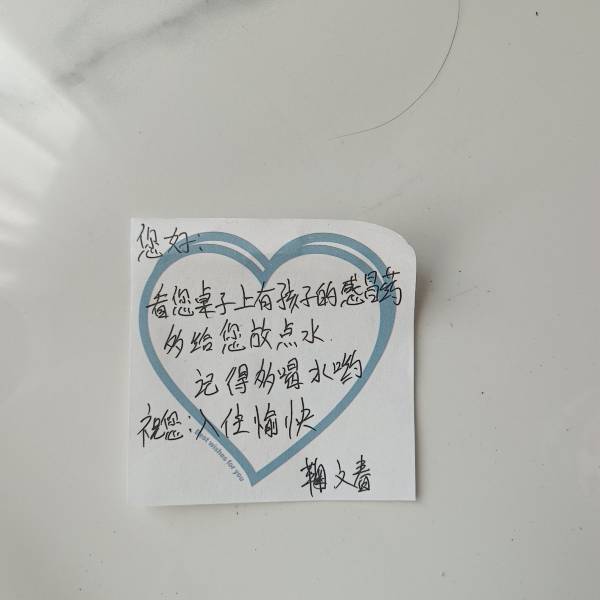 您好:
看您桌子上有孩子的感冒药
多给您放点水.
记得多喝水哟
祝您:入住愉快
best wishes for you
鞠文青